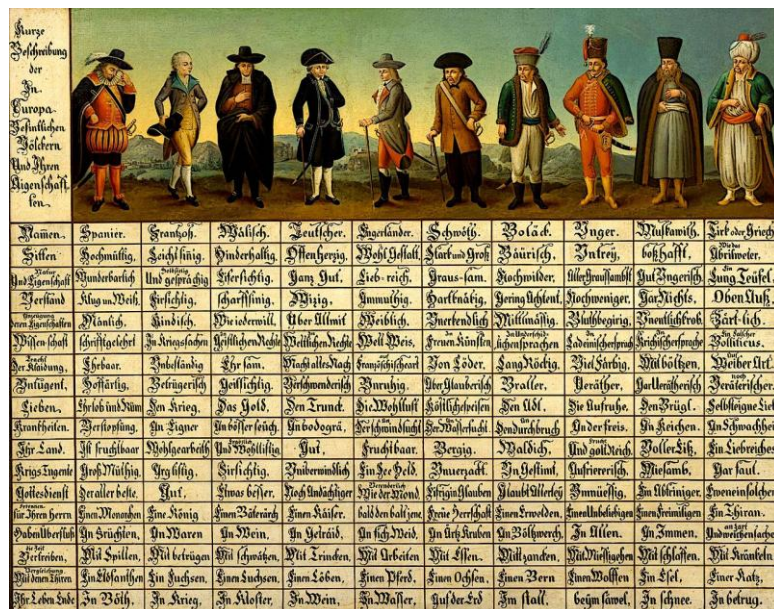 Kurze
Beschreibung
der
In
Europa
Befintlichen
Völckern
Und Ihren
Aigenschaff
ten.
Namen. Spanier. Frantzoß. Wälisch. Teutscher. Engerländer. Schwöth. Boläck. Unger. Muskawith. Tirk oder Griech
Sitten Hochmüttig. Leichtsinig. Hinderhaltig. Offenherzig. Wohl Gestalt. Starck und Groß Bäurisch. Untrey. boßhafft. Abrilweter.
Und Eigenschaft Wunderbarlich Und gesprächig Eifersichtig. Ganz Gut. Lieb-reich. Graus-sam. Hochwilder. Aller Graussambst Gut Ungerisch. Lung Teüfel.
Verstand Klug un Weiß. Firsichtig. scharffsinig. Wizig. Ammuthig. Hartknätig. Gering Achtent. Nochweniger. Gar Nichts. Oben Auß.
deren Eigenschaften Mänlich. Kindisch. Wie iederwill. Über Allmit Weiblich. Unerkendlich Mittlmässig. Bluthbegirig. Unentlichkrob. Zärt-lich.
Wissenschaft schriftgelehrt In Kriegssachen Geistlichen Rechte Weltlichen Rechte Welt Weis. Freuen Künsten lichensprachen Ladeinischersprach Krichischersprache Politicus.
Der Klaidung. Ehrbaar. Unbeständig Ehrsam. Macht alles Nach Französischeart Von Löder. Lang Röckig. Viel Färbig. Mit böltzen. Weiber Art
Untugent. Hoffärtig. Betrügerisch Geilsichtig. Verschwenderisch Unruhig. Aber Glauberisch Braller. Veräther. Gar Verrätherisch Veräterischer.
Lieben. Ehrlob und Rüm Den Krieg. Das Gold. Den Trunck. Die Wohllust Köstlichespeisen Den Adl. Die Aufruhe. Den Brügl. Selbsteigne Lieb
Krankheiten. Verstopfung. An Eigner An bösser seüch. An bodogrä. Der schwindsucht Der Wassersucht. Den durchbruch An der freis. An Keichen. An Schwachheit
Ihr Land. Ist fruchtbaar Wohlgearbeith Und Wohllistig Gut. Fruchtbaar. Bergig. Waldich. Und gold Reich. Voller Eiß. Ein Liebreiches
Krigs Tugente Groß Müthig. Arg listig. Firsichtig. Uniberwindlich Ein See Held. Unverzackt. Un Gestimt. Aufriererisch. Miesamb. Gar faul.
Gottesdienst Der aller beste. Gut. Etwas besser. Noch Andächtiger Wie der Mond. Eifrig in Glauben Glaubt Allerley Unmüessig. Ein Abtriniger. Eweneinsolcher
für Ihren Herrn Einen Monarchen Eine König Einen Bäterärch Einen Käiser. bald den balt jene. Freüe Herrschaft Einen Erwelden. Einen Unbeliebigen Einen Freimilligen Ein Thiran.
Haben Überfluß An Früchten. An Waren An Wein. An Getraid. An fich Weid. An Ärtz Kruben An Böltzwerch. In Allen. An Immen. Und weichen sachen
Vertreiben. Mit Spillen. Mit betrügen Mit schwätzen. Mit Trincken. Mit Arbeiten Mit Essen. Mitl zancken. Mit Miessigehen Mit schlaffen. Mit Kränkeln
Mit denen Thiren Ein Elofanthen Ein Fuchsen. Einen Luchsen. Einen Löben. Einen Pferd. Einen Ochsen. Einen Bern Einen Wolffen Ein Esel. Einer Katz.
Ihr Leben Ende In Böth. In Krieg. In Kloster. In Wein. In Wasser. Auf der Erd Im stall. beym sawel. In schnee. In betrug.